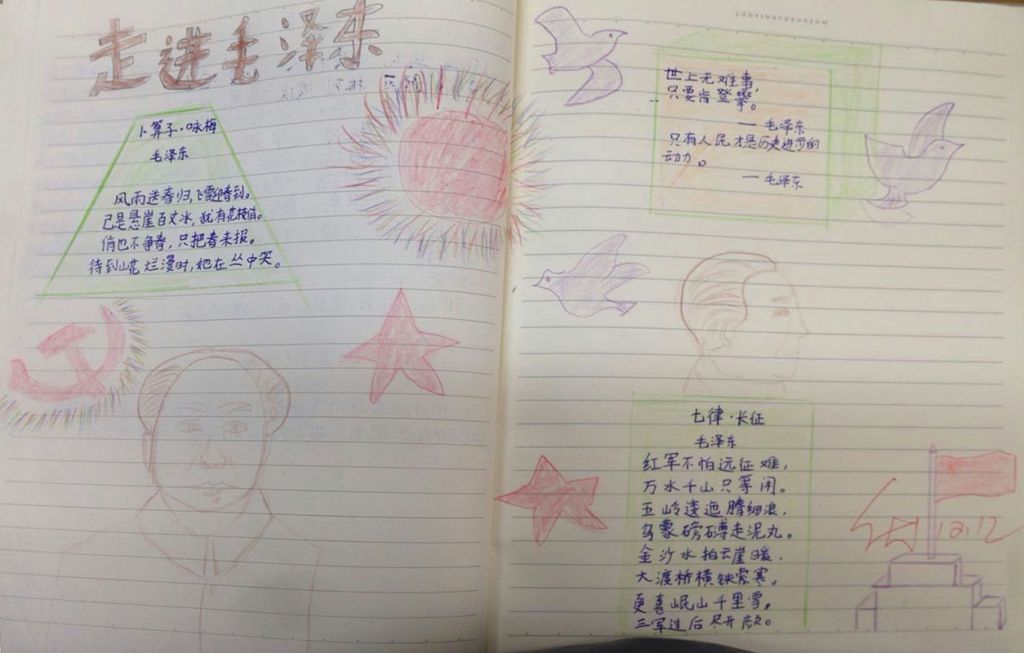 走进毛泽东
卜算子·咏梅
毛泽东
风雨送春归,飞雪迎春到。
已是悬崖百丈冰,犹有花枝俏。
俏也不争春,只把春来报。
待到山花烂漫时,她在丛中笑。
世上无难事,
只要肯登攀。
—毛泽东
只有人民才是历史进步的
动力。
—毛泽东
七律·长征
毛泽东
红军不怕远征难,
万水千山只等闲。
五岭逶迤腾细浪,
乌蒙磅礴走泥丸。
金沙水拍云崖暖,
大渡桥横铁索寒。
更喜岷山千里雪,
三军过后尽开颜。
12.12